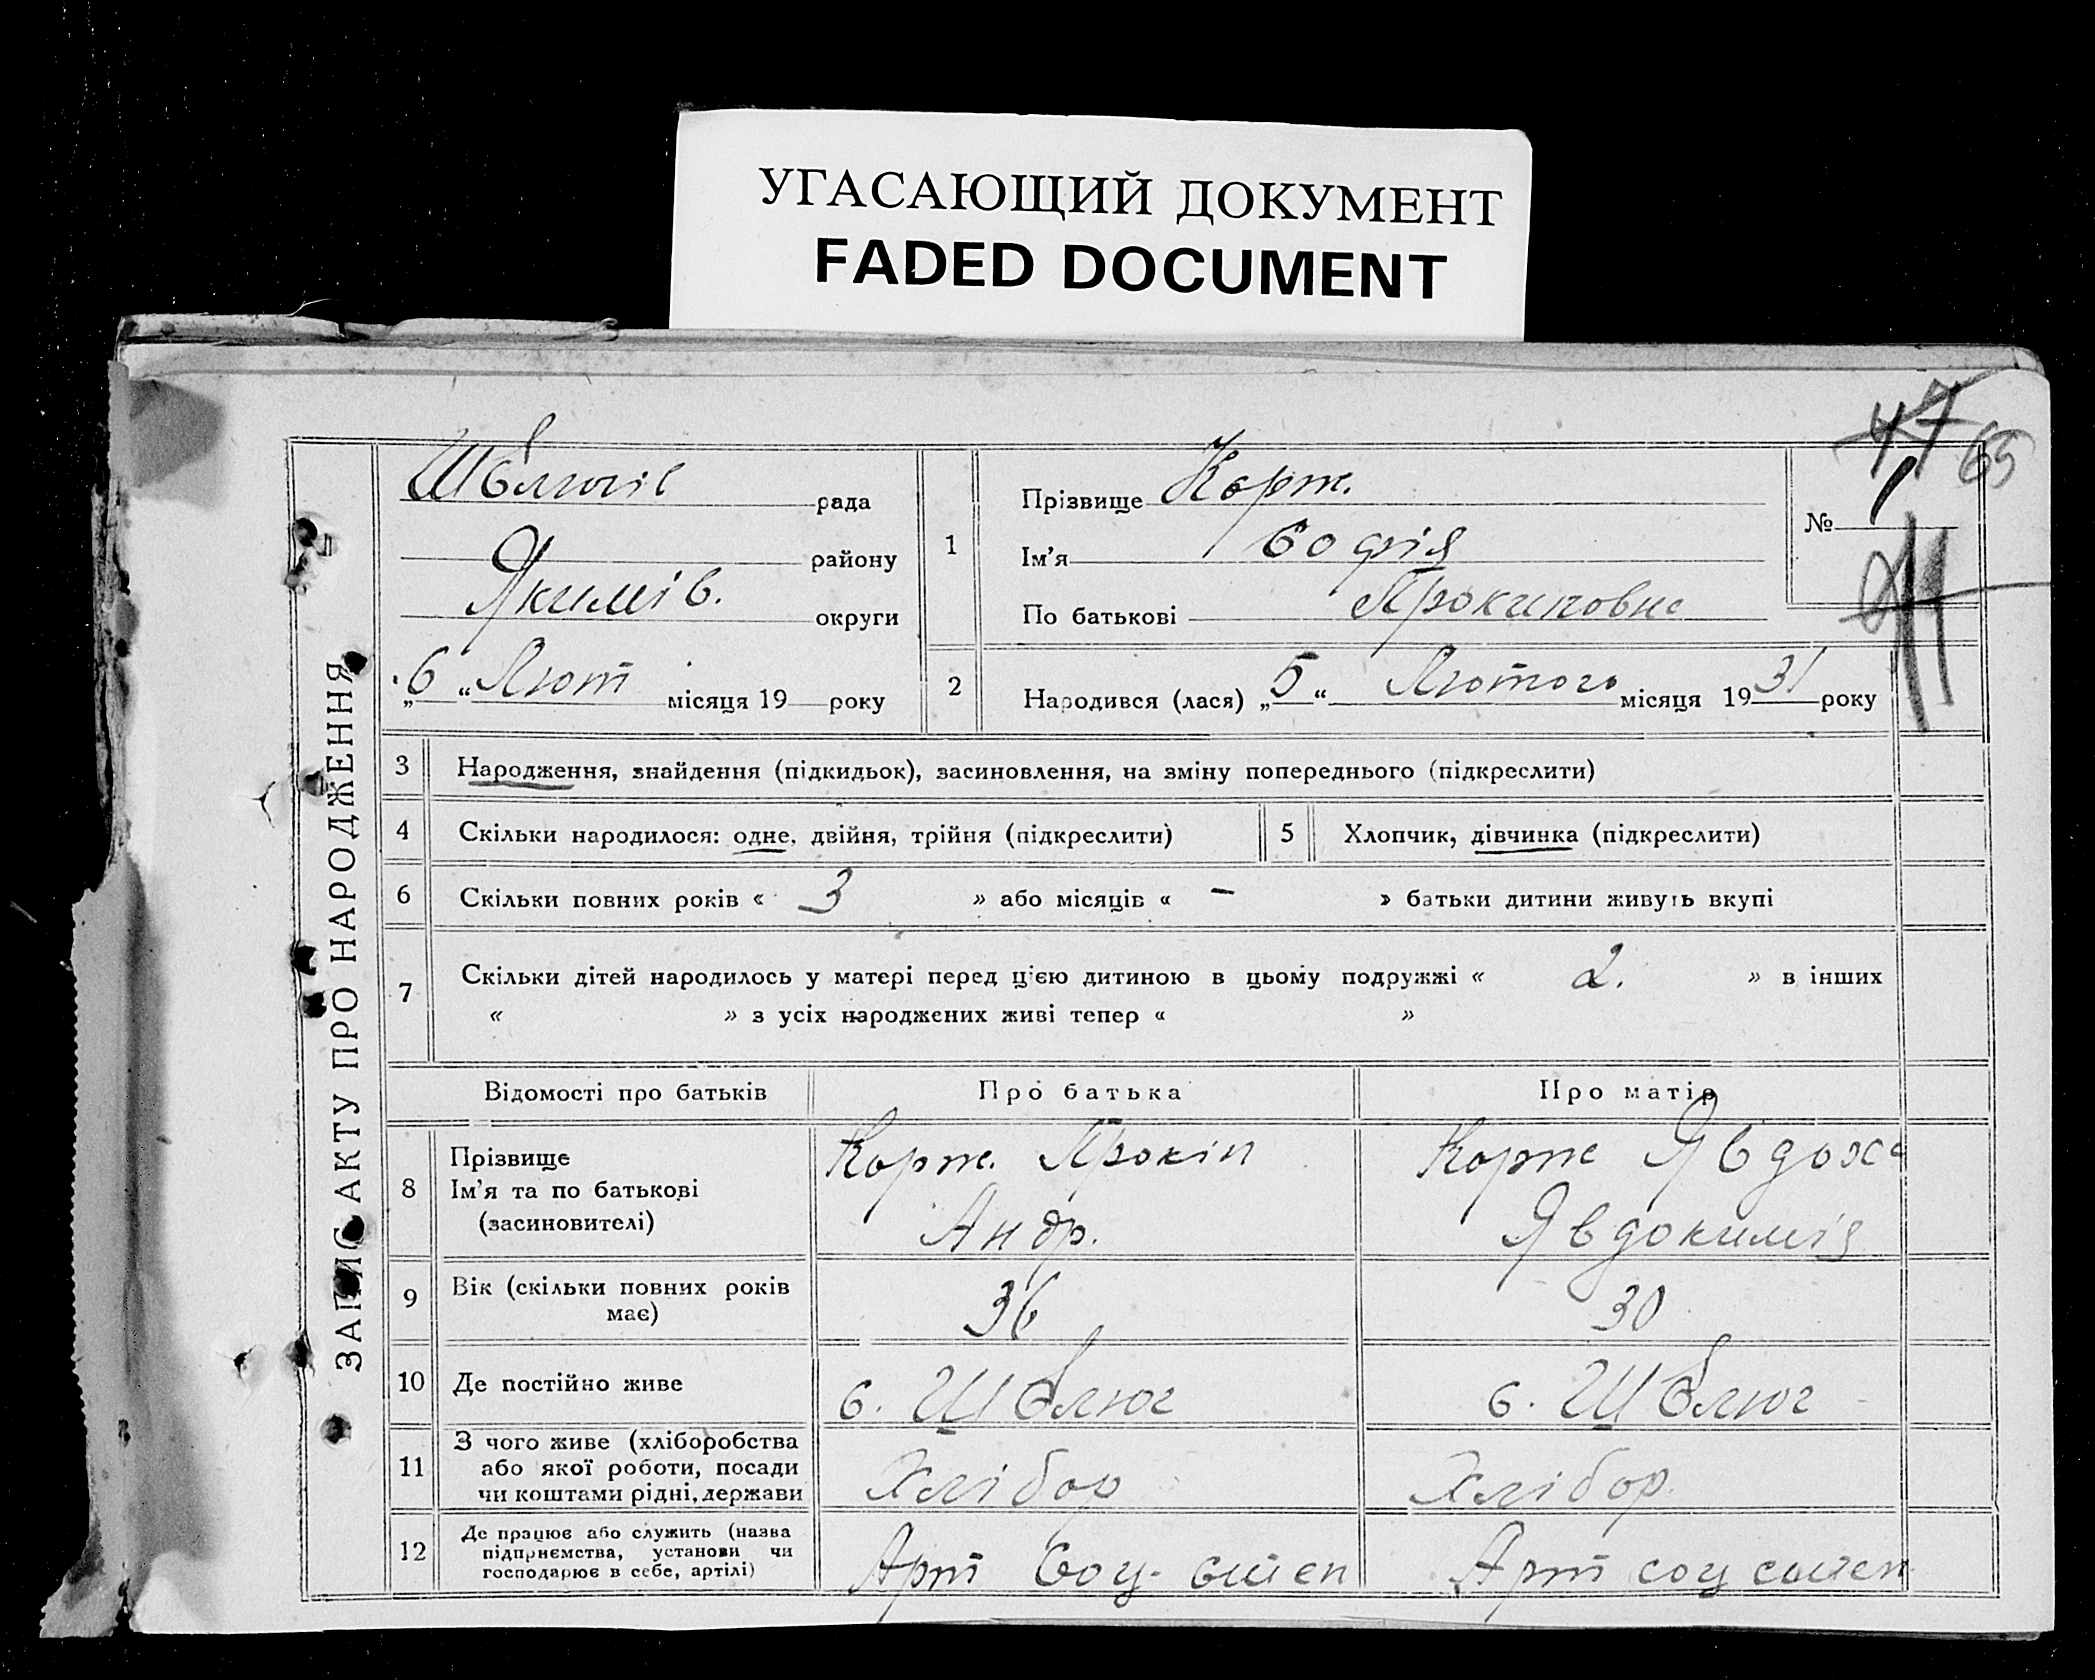 УГАСАЮЩИЙ ДОКУМЕНТ
FADED DOCUMENT
47
65
ЗАПИС АКТУ ПРО НАРОДЖЕННЯ
рада
району
Якимів. округи
„6“ Лют місяця 19 року
1
Прізвище Корж.
Ім'я Софія
По батькові Прокиповна
№ 1
2
Народився (лася) „5“ Лютого місяця 1931 року
3 Народження, знайдення (підкидьок), засиновлення, на зміну попереднього (підкреслити)
4 Скільки народилося: одне, двійня, трійня (підкреслити)
5 Хлопчик, дівчинка (підкреслити)
6 Скільки повних років « 3 » або місяців « – » батьки дитини живуть вкупі
7 Скільки дітей народилось у матері перед цією дитиною в цьому подружжі « 2. » в інших
« » з усіх народжених живі тепер « »
Відомості про батьків Про батька Про матір
8 Прізвище
Ім'я та по батькові
(засиновителі)
Корж. Прокіп
Андр.
Корж Явдоха
Явдокимів
9 Вік (скільки повних років
має)
36
30
10 Де постійно живе
с. Шевлюг
с. Шевлюг
11 З чого живе (хліборобства
або якої роботи, посади
чи коштами рідні, держави
Хлібор
Хлібор.
12 Де працює або служить (назва
підприємства, установи чи
господарює в себе, артілі)
Арт Соц.
Арт соц